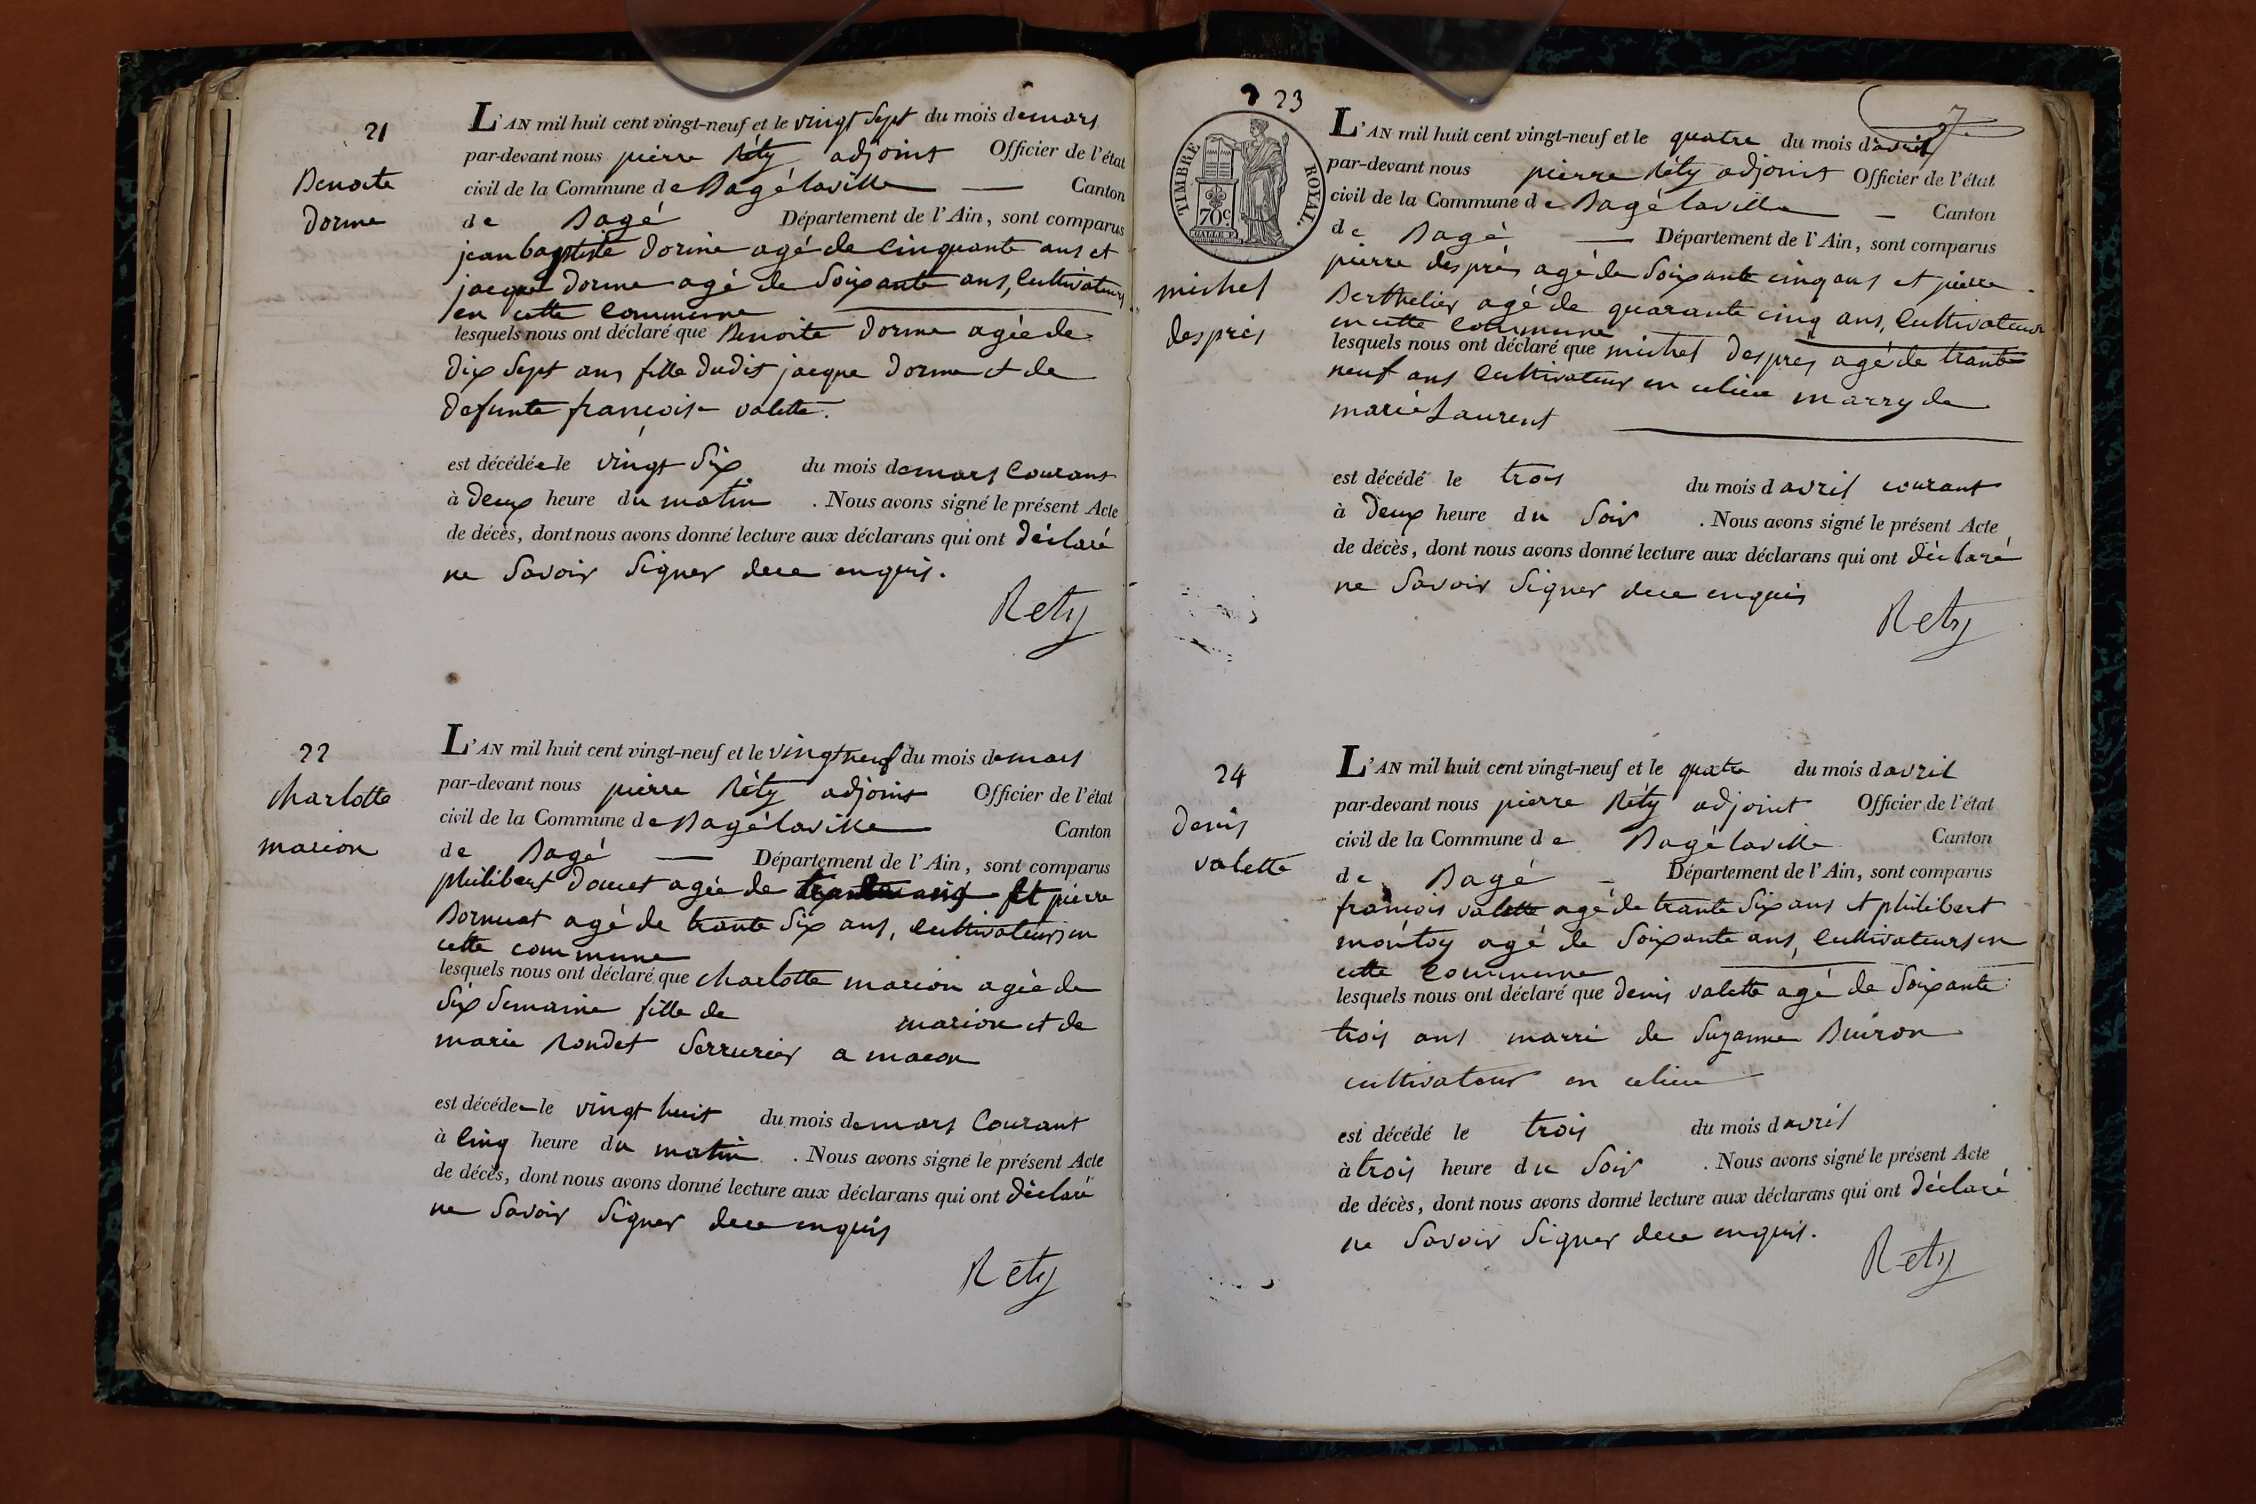 21
Benoite
dorme
L'AN mil huit cent vingt-neuf et le vingt sept du mois de mars
par-devant nous pierre Réty adjoint Officier de l'état
civil de la Commune de Bagé laville — Canton
de Bagé Département de l'Ain, sont comparus
jean baptiste dorme agé de cinquante ans et
jacque dorme agé de soixante ans, cultivateurs
en cette commune
lesquels nous ont déclaré que Benoite dorme agée de
dix sept ans fille dudit jacque dorme et de
defunte françoise valette.
est décédée le vingt six du mois de mars courant
à deux heure du matin . Nous avons signé le présent Acte
de décès, dont nous avons donné lecture aux déclarans qui ont déclaré
ne savoir signer de ce enquis.
Rety
22
charlotte
marion
L'AN mil huit cent vingt-neuf et le vingt neuf du mois de mars
par-devant nous pierre Réty adjoint Officier de l'état
civil de la Commune de Bagé laville Canton
de Bagé — Département de l'Ain, sont comparus
philibert doucet agée de et pierre
Bornuat agé de trante six ans, cultivateurs en
cette commune
lesquels nous ont déclaré que charlotte marion agée de
six semaine fille de marion et de
marie Rondet serrurier a macon
est décédée le vingt huit du mois de mars courant
à cinq heure du matin . Nous avons signé le présent Acte
de décès, dont nous avons donné lecture aux déclarans qui ont déclaré
ne savoir signer de ce enquis
Rety
23
7
TIMBRE ROYAL.
70c
michel
desprès
L'AN mil huit cent vingt-neuf et le quatre du mois d'avril
par-devant nous pierre Réty adjoint Officier de l'état
civil de la Commune de Bagé laville — Canton
de Bagé — Département de l'Ain, sont comparus
pierre desprès agé de soixante cinq ans et pierre
Berthelier agé de quarante cinq ans, cultivateurs
en cette commune
lesquels nous ont déclaré que michel desprès agé de trante
neuf ans cultivateur en ce lieu marry de
marie Laurent
est décédé le trois du mois d'avril courant
à deux heure du soir . Nous avons signé le présent Acte
de décès, dont nous avons donné lecture aux déclarans qui ont déclaré
ne savoir signer de ce enquis
Rety
24
denis
valette
L'AN mil huit cent vingt-neuf et le quatre du mois d'avril
par-devant nous pierre Réty adjoint Officier de l'état
civil de la Commune de Bagé laville Canton
de Bagé — Département de l'Ain, sont comparus
françois valette agé de trante six ans et philibert
montoy agé de soixante ans, cultivateurs en
cette commune
lesquels nous ont déclaré que denis valette agé de soixante
trois ans marri de Suzanne Buiron
cultivateur en ce lieu
est décédé le trois du mois d'avril
à trois heure du soir . Nous avons signé le présent Acte
de décès, dont nous avons donné lecture aux déclarans qui ont déclaré
ne savoir signer de ce enquis.
Rety